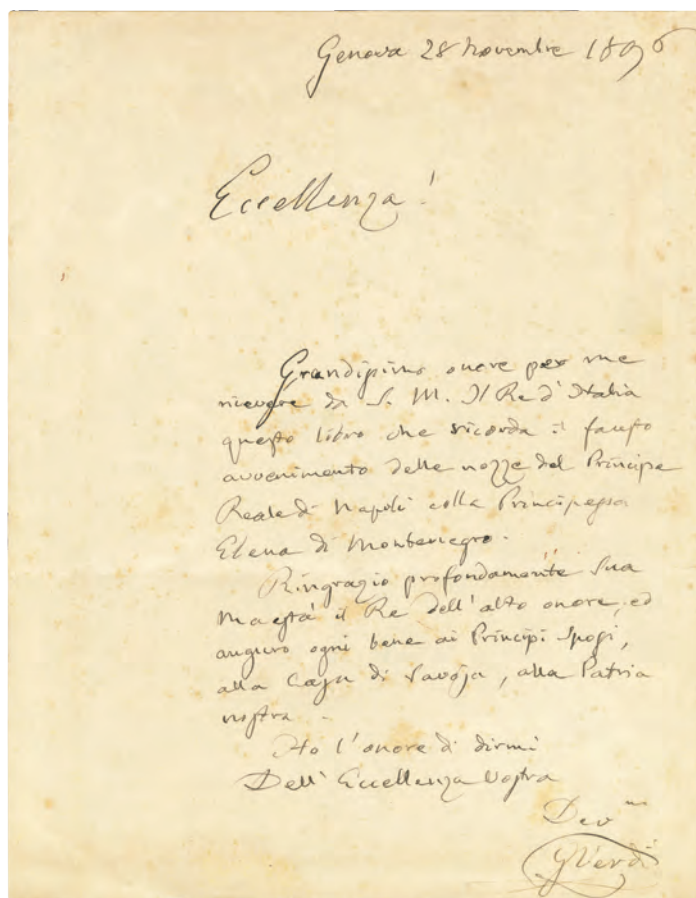 Genova 28 Novembre 1896
Eccellenza!
Grandissimo onore per me
ricevere da S. M. Il Re d'Italia
questo libro che ricorda il fausto
avvenimento delle nozze del Principe
Reale di Napoli colla Principessa
Elena di Montenegro.
Ringrazio profondamente Sua
Maestà il Re dell'alto onore, ed
auguro ogni bene ai Principi Sposi,
alla Casa di Savoja, alla Patria
nostra.
Ho l'onore di dirmi
Dell'Eccellenza Vostra
Dev mo
GVerdi